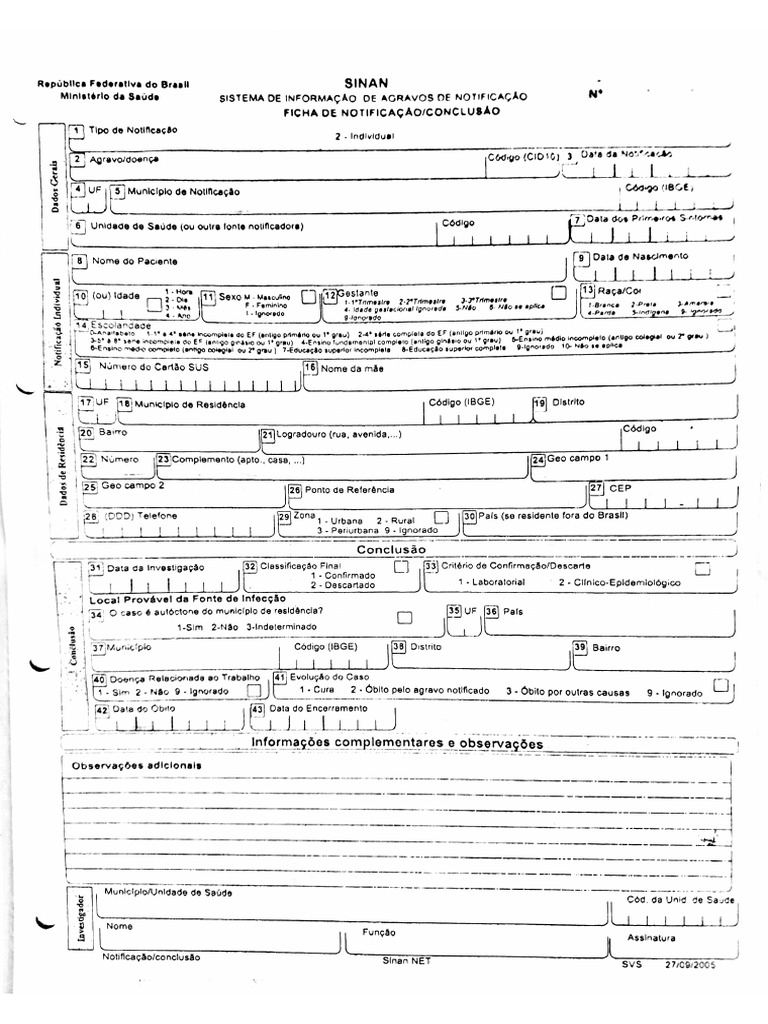 República Federativa do Brasil
Ministério da Saúde
SINAN
SISTEMA DE INFORMAÇÃO DE AGRAVOS DE NOTIFICAÇÃO
FICHA DE NOTIFICAÇÃO/CONCLUSÃO
Nº
Dados Gerais
1 Tipo de Notificação
2 - Individual
2 Agravo/doença
Código (CID10)
3 Data da Notificação
4 UF
5 Município de Notificação
Código (IBGE)
6 Unidade de Saúde (ou outra fonte notificadora)
Código
7 Data dos Primeiros Sintomas
Notificação Individual
8 Nome do Paciente
9 Data de Nascimento
10 (ou) Idade
1 - Hora
2 - Dia
3 - Mês
4 - Ano
11 Sexo M - Masculino
F - Feminino
I - Ignorado
12 Gestante
1-1ºTrimestre 2-2ºTrimestre 3-3ºTrimestre
4- Idade gestacional Ignorada 5-Não 6- Não se aplica
9-Ignorado
13 Raça/Cor
1-Branca 2-Preta 3-Amarela
4-Parda 5-Indígena 9- Ignorado
14 Escolaridade
0-Analfabeto 1-1ª a 4ª série incompleta do EF (antigo primário ou 1º grau) 2-4ª série completa do EF (antigo primário ou 1º grau)
3-5ª à 8ª série incompleta do EF (antigo ginásio ou 1º grau) 4-Ensino fundamental completo (antigo ginásio ou 1º grau) 5-Ensino médio incompleto (antigo colegial ou 2º grau )
6-Ensino médio completo (antigo colegial ou 2º grau ) 7-Educação superior incompleta 8-Educação superior completa 9-Ignorado 10- Não se aplica
15 Número do Cartão SUS
16 Nome da mãe
Dados de Residência
17 UF
18 Município de Residência
Código (IBGE)
19 Distrito
20 Bairro
21 Logradouro (rua, avenida,...)
Código
22 Número
23 Complemento (apto., casa, ...)
24 Geo campo 1
25 Geo campo 2
26 Ponto de Referência
27 CEP
28 (DDD) Telefone
29 Zona
1 - Urbana 2 - Rural
3 - Periurbana 9 - Ignorado
30 País (se residente fora do Brasil)
Conclusão
Conclusão
31 Data da Investigação
32 Classificação Final
1 - Confirmado
2 - Descartado
33 Critério de Confirmação/Descarte
1 - Laboratorial 2 - Clínico-Epidemiológico
Local Provável da Fonte de Infecção
34 O caso é autóctone do município de residência?
1-Sim 2-Não 3-Indeterminado
35 UF
36 País
37 Município
Código (IBGE)
38 Distrito
39 Bairro
40 Doença Relacionada ao Trabalho
1 - Sim 2 - Não 9 - Ignorado
41 Evolução do Caso
1 - Cura 2 - Óbito pelo agravo notificado 3 - Óbito por outras causas 9 - Ignorado
42 Data do Óbito
43 Data do Encerramento
Informações complementares e observações
Observações adicionais
Investigador
Município/Unidade de Saúde
Cód. da Unid. de Saúde
Nome
Função
Assinatura
Notificação/conclusão
Sinan NET
SVS 27/09/2005